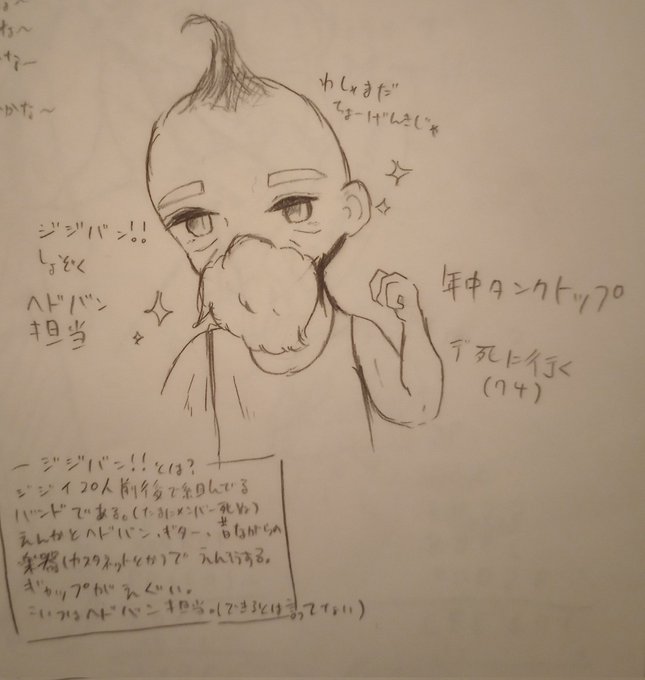 な〜
な〜
なー
かな〜
わしゃまだ
ちょーげんきじゃ
ジジバン!!
しょぞく
ヘドバン
担当
年中タンクトップ
デ死に行く
(74)
ージジバン!!とは?
ジジイ20人前後で組んでる
バンドである。(たまにメンバー死ぬ)
えんかとヘドバン、ギター、昔ながらの
楽器(カスタネットとか)でえんそうする。
ギャップがえぐい。
こいつはヘドバン担当。(できるとは言ってない)